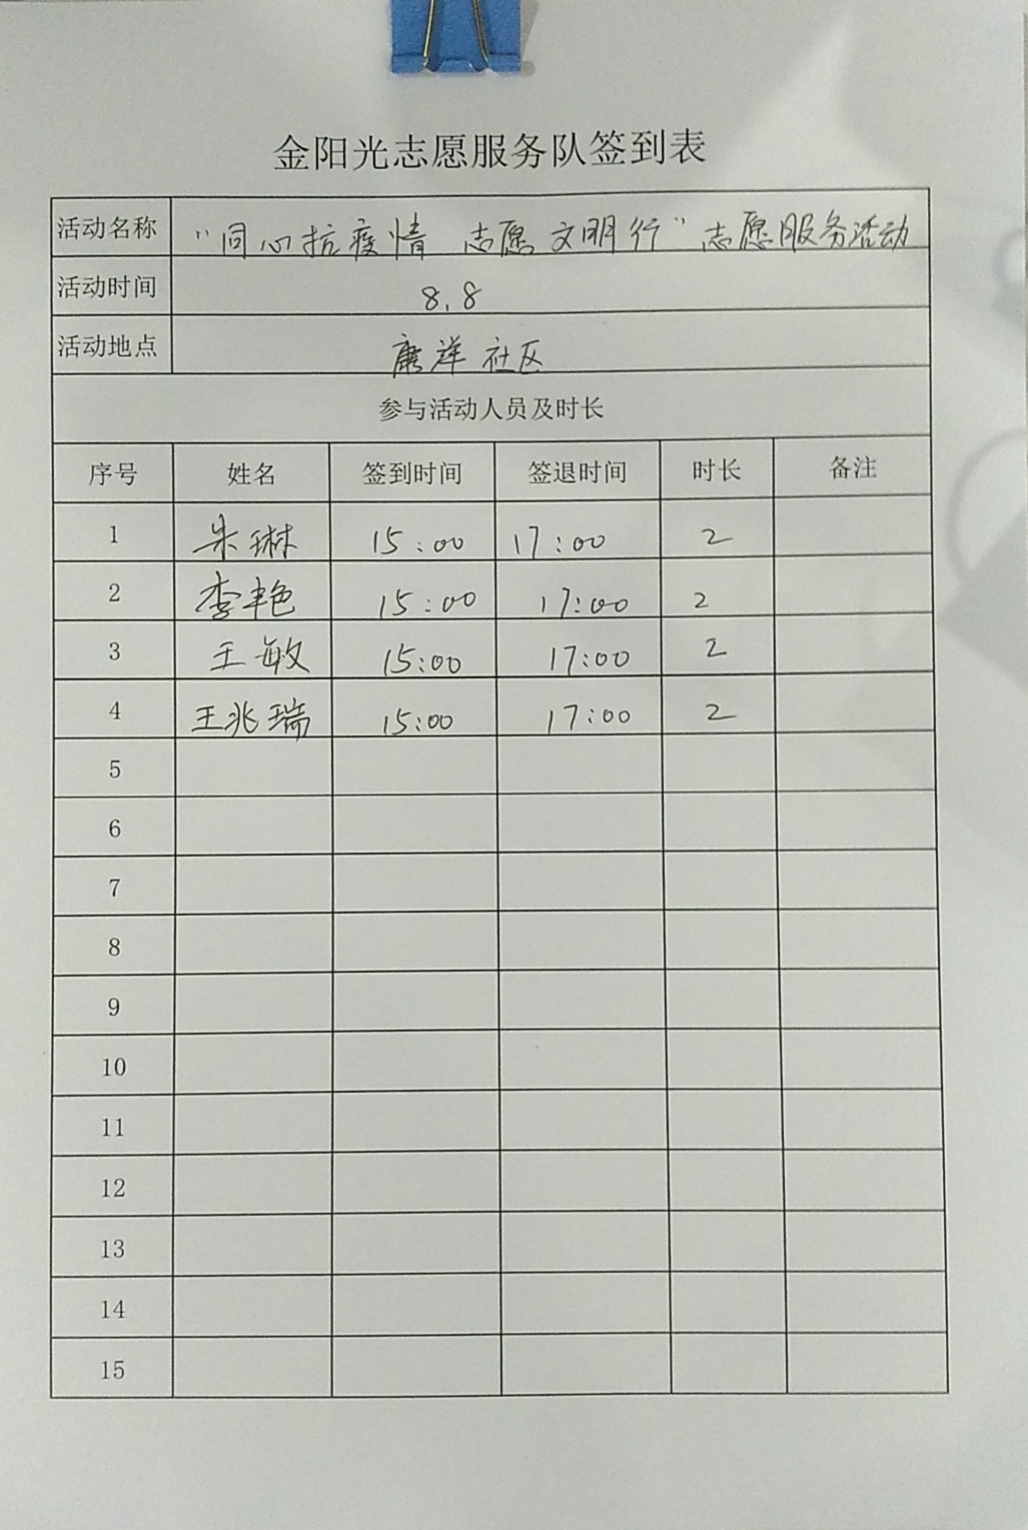 金阳光志愿服务队签到表
活动名称 "同心抗疫情 志愿文明行"志愿服务活动
活动时间 8.8
活动地点 康祥社区
参与活动人员及时长
序号 姓名 签到时间 签退时间 时长 备注
1 朱琳 15:00 17:00 2
2 李艳 15:00 17:00 2
3 王敏 15:00 17:00 2
4 王兆瑞 15:00 17:00 2
5
6
7
8
9
10
11
12
13
14
15